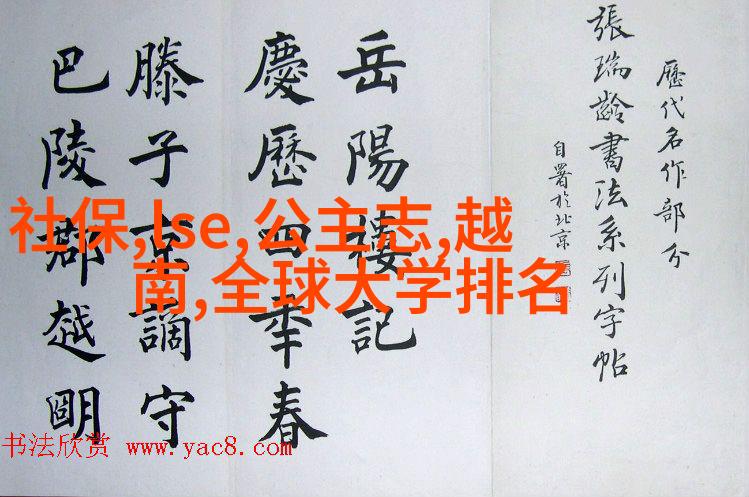 歷代名作部分
張瑞齡書法系列字帖
自署於北京
岳陽樓記
慶歷四年春
滕子京謫守
巴陵郡越朙
社保,lse,公主志,越
南,全球大学排名
书法欣赏 www.yac8.com